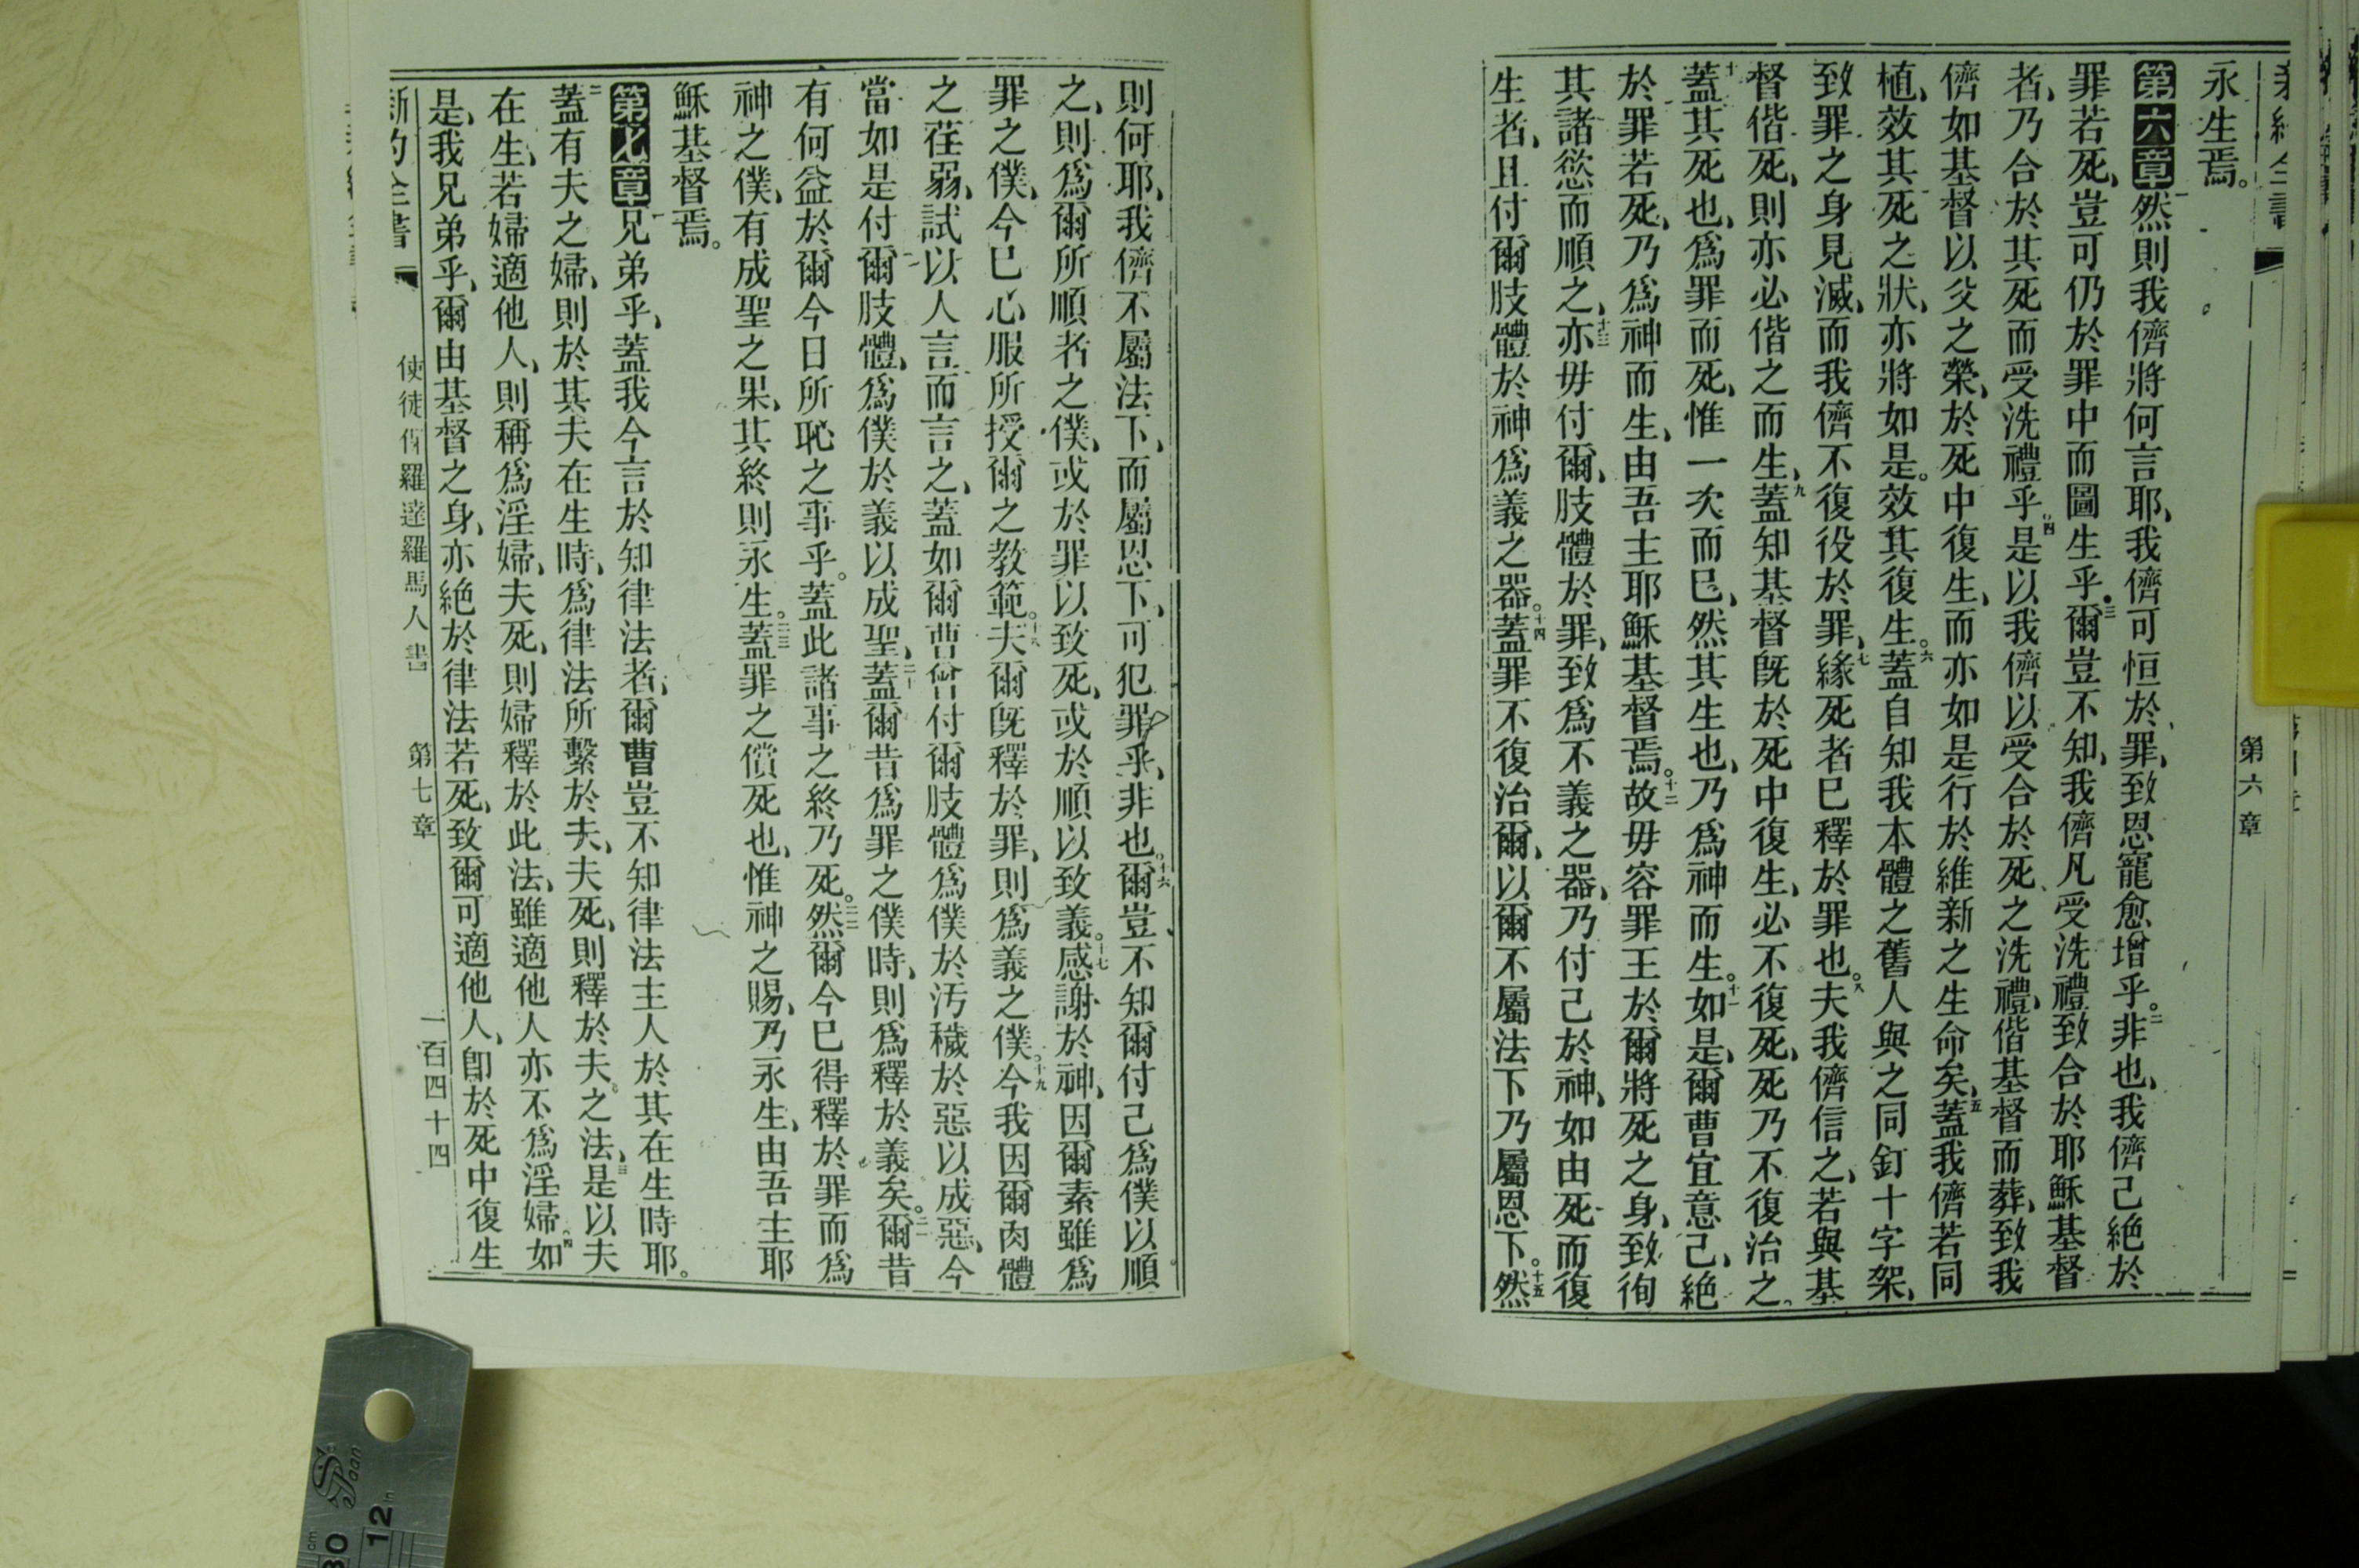 第六章
永生焉。
第六章一然則我儕將何言耶、我儕可恒於罪、致恩寵愈增乎。二非也、我儕己絕於
罪若死、豈可仍於罪中而圖生乎。三爾豈不知、我儕凡受洗禮致合於耶穌基督
者、乃合於其死而受洗禮乎。四是以我儕以受合於死、之洗禮、偕基督而葬、致我
儕如基督以父之榮、於死中復生、而亦如是行於維新之生命矣、五蓋我儕若同
植、效其死之狀、亦將如是。效其復生。六蓋自知我本體之舊人與之同釘十字架、
致罪之身見滅、而我儕不復役於罪、七緣死者已釋於罪也。八夫我儕信之、若與基
督偕死、則亦必偕之而生、九蓋知基督旣於死中復生、必不復死、死乃不復治之。
十蓋其死也、爲罪而死、惟一次而已、然其生也、乃爲神而生。十一如是、爾曹宜意己、絕
於罪若死、乃爲神而生、由吾主耶穌基督焉。十二故毋容罪王於爾將死之身、致徇
其諸慾而順之、十三亦毋付爾、肢體於罪、致爲不義之器、乃付己於神、如由死而復
生者、且付爾肢體於神爲義之器。十四蓋罪不復治爾、以爾不屬法下乃屬恩下。十五然
則何耶、我儕不屬法下、而屬恩下、可犯罪乎、非也。十六爾豈不知爾付己爲僕以順
之、則爲爾所順者之僕、或於罪以致死、或於順以致義。十七感謝於神、因爾素雖爲
罪之僕、今已心服所授爾之教範。十八夫爾旣釋於罪、則爲義之僕。十九今我因爾肉體
之荏弱、試以人言而言之、蓋如爾曹曾付爾肢體爲僕於汚穢於惡以成惡、今
當如是付爾肢體、爲僕於義以成聖、二十蓋爾昔爲罪之僕時、則爲釋於義矣。二一爾昔
有何益於爾今日所恥之事乎。蓋此諸事之終乃死。二二然爾今已得釋於罪而爲
神之僕、有成聖之果、其終則永生。二三蓋罪之償死也、惟神之賜、乃永生、由吾主耶
穌基督焉。
第七章一兄弟乎、蓋我今言於知律法者、爾曹豈不知律法主人於其在生時耶。
二蓋有夫之婦、則於其夫在生時、爲律法所繫於夫、夫死、則釋於夫之法、三是以夫
在生、若婦適他人、則稱爲淫婦、夫死、則婦釋於此法、雖適他人亦不爲淫婦、四如
是、我兄弟乎、爾由基督之身、亦絕於律法若死、致爾可適他人、卽於死中復生
使徒保羅達羅馬人書
第七章
一百四十四
12